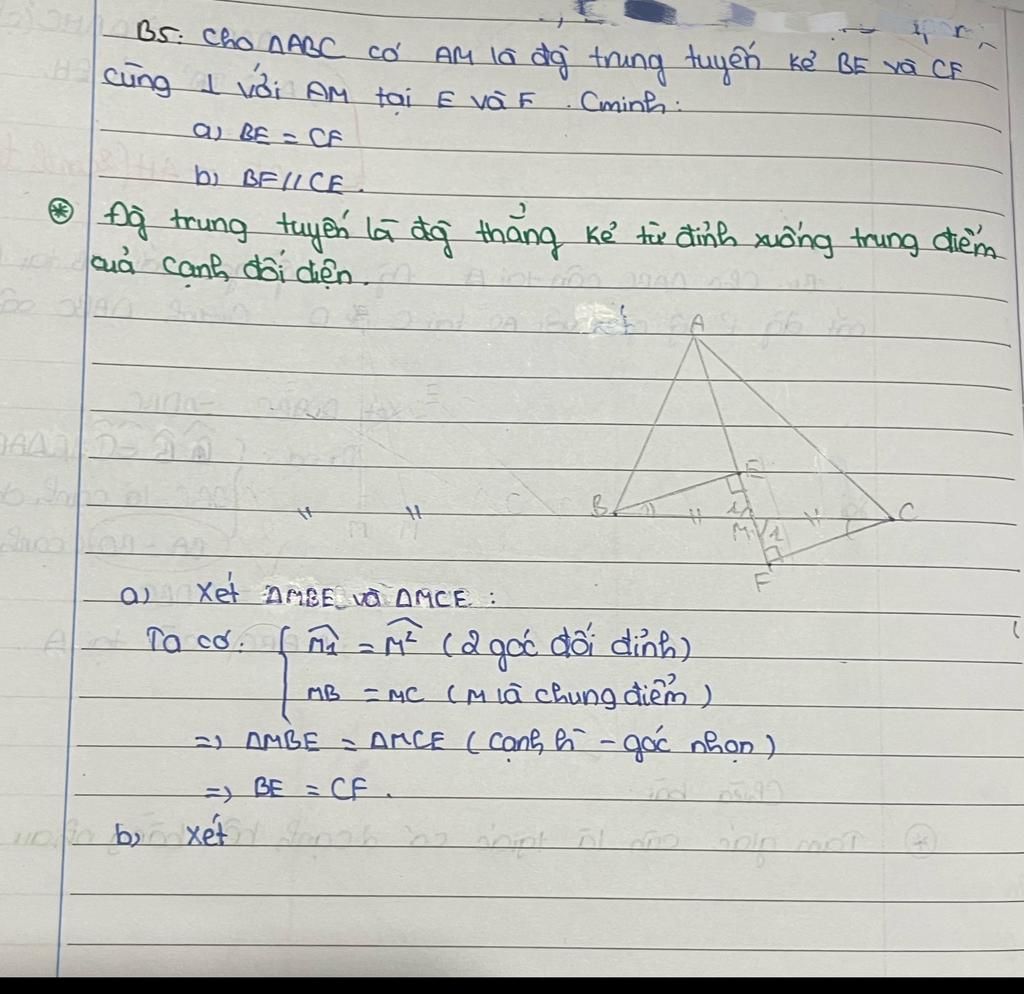 B5: Cho ΔABC có AM là đg trung tuyến kẻ BE và CF
cùng ⊥ với AM tại E và F. Cminh:
a) BE = CF
b) BF // CE.
⊛ Đg trung tuyến là đg thẳng kẻ từ đỉnh xuống trung điểm
quả cạnh đối diện.
A
E
B
1
C
M
2
F
a) Xét ΔMBE và ΔMCE:
Ta có: { M̂1 = M̂2 (2 góc đối đỉnh)
MB = MC (M là chung điểm)
=> ΔMBE = ΔMCE (cạnh h - góc nhọn)
=> BE = CF.
b) xét